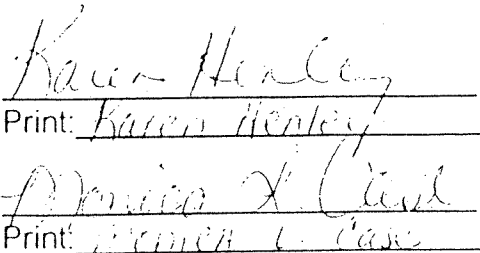 Karen Henley
Print: Karen Henley
Monica L. Case
Print: Monica L. Case